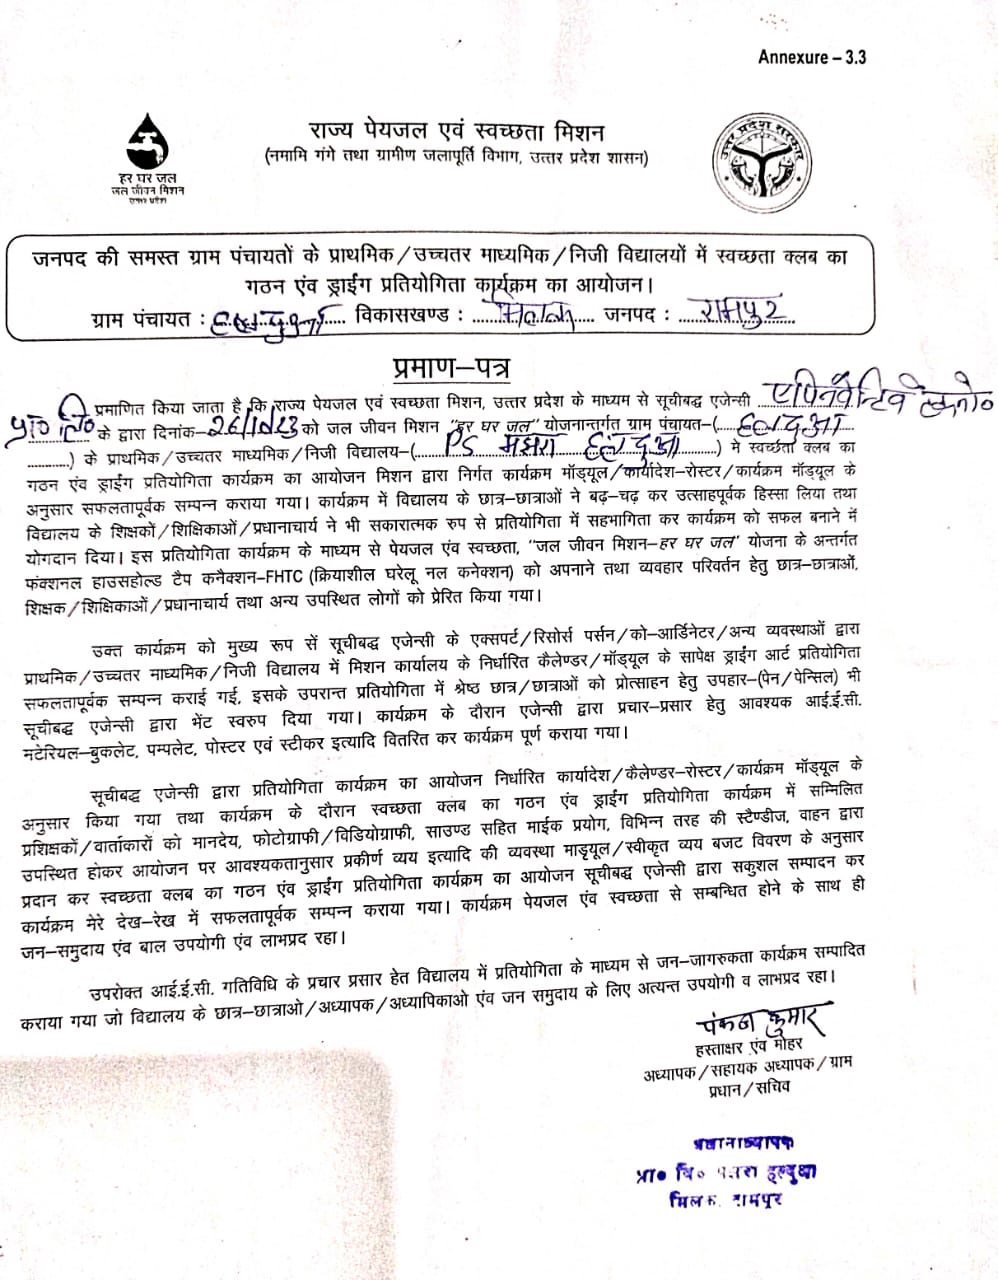 Annexure – 3.3
राज्य पेयजल एवं स्वच्छता मिशन
(नमामि गंगे तथा ग्रामीण जलापूर्ति विभाग, उत्तर प्रदेश शासन)
हर घर जल
जल जीवन मिशन
उत्तर प्रदेश
उत्तर प्रदेश सरकार
जनपद की समस्त ग्राम पंचायतों के प्राथमिक/उच्चतर माध्यमिक/निजी विद्यालयों में स्वच्छता क्लब का
गठन एंव ड्राईंग प्रतियोगिता कार्यक्रम का आयोजन।
ग्राम पंचायत : ........ विकासखण्ड : ...मिलक... जनपद : ...रामपुर...
प्रमाण–पत्र
प्रमाणित किया जाता है कि राज्य पेयजल एवं स्वच्छता मिशन, उत्तर प्रदेश के माध्यम से सूचीबद्ध एजेन्सी
प्रा० लि० के द्वारा दिनांक–26/10/23 को जल जीवन मिशन "हर घर जल" योजनान्तर्गत ग्राम पंचायत–(...हल्दुआ...
..........) के प्राथमिक/उच्चतर माध्यमिक/निजी विद्यालय–(...PS मझरा हल्दुआ...) मे स्वच्छता क्लब का
गठन एंव ड्राईंग प्रतियोगिता कार्यक्रम का आयोजन मिशन द्वारा निर्गत कार्यक्रम मॉड्यूल/कार्यादेश-रोस्टर/कार्यक्रम मॉड्यूल के
अनुसार सफलतापूर्वक सम्पन्न कराया गया। कार्यक्रम में विद्यालय के छात्र–छात्राओं ने बढ़–चढ़ कर उत्साहपूर्वक हिस्सा लिया तथा
विद्यालय के शिक्षकों/शिक्षिकाओं/प्रधानाचार्य ने भी सकारात्मक रुप से प्रतियोगिता में सहभागिता कर कार्यक्रम को सफल बनाने में
योगदान दिया। इस प्रतियोगिता कार्यक्रम के माध्यम से पेयजल एंव स्वच्छता, "जल जीवन मिशन–हर घर जल" योजना के अन्तर्गत
फंक्शनल हाउसहोल्ड टैप कनैक्शन–FHTC (क्रियाशील घरेलू नल कनेक्शन) को अपनाने तथा व्यवहार परिवर्तन हेतु छात्र–छात्राओं,
शिक्षक/शिक्षिकाओं/प्रधानाचार्य तथा अन्य उपस्थित लोगों को प्रेरित किया गया।
उक्त कार्यक्रम को मुख्य रूप सें सूचीबद्ध एजेन्सी के एक्सपर्ट/रिसोर्स पर्सन/को–आर्डिनेटर/अन्य व्यवस्थाओं द्वारा
प्राथमिक/उच्चतर माध्यमिक/निजी विद्यालय में मिशन कार्यालय के निर्धारित कैलेण्डर/मॉड्यूल के सापेक्ष ड्राईंग आर्ट प्रतियोगिता
सफलतापूर्वक सम्पन्न कराई गई, इसके उपरान्त प्रतियोगिता में श्रेष्ठ छात्र/छात्राओं को प्रोत्साहन हेतु उपहार–(पेन/पेन्सिल) भी
सूचीबद्ध एजेन्सी द्वारा भेंट स्वरुप दिया गया। कार्यक्रम के दौरान एजेन्सी द्वारा प्रचार–प्रसार हेतु आवश्यक आई.ई.सी.
मटेरियल–बुकलेट, पम्पलेट, पोस्टर एवं स्टीकर इत्यादि वितरित कर कार्यक्रम पूर्ण कराया गया।
सूचीबद्ध एजेन्सी द्वारा प्रतियोगिता कार्यक्रम का आयोजन निर्धारित कार्यादेश/कैलेण्डर–रोस्टर/कार्यक्रम मॉड्यूल के
अनुसार किया गया तथा कार्यक्रम के दौरान स्वच्छता क्लब का गठन एंव ड्राईंग प्रतियोगिता कार्यक्रम में सम्मिलित
प्रशिक्षकों/वार्ताकारों को मानदेय, फोटोग्राफी/विडियोग्राफी, साउण्ड सहित माईक प्रयोग, विभिन्न तरह की स्टैण्डीज, वाहन द्वारा
उपस्थित होकर आयोजन पर आवश्यकतानुसार प्रकीर्ण व्यय इत्यादि की व्यवस्था माड्यूल/स्वीकृत व्यय बजट विवरण के अनुसार
प्रदान कर स्वच्छता क्लब का गठन एंव ड्राईंग प्रतियोगिता कार्यक्रम का आयोजन सूचीबद्ध एजेन्सी द्वारा सकुशल सम्पादन कर
कार्यक्रम मेरे देख–रेख में सफलतापूर्वक सम्पन्न कराया गया। कार्यक्रम पेयजल एंव स्वच्छता से सम्बन्धित होने के साथ ही
जन–समुदाय एंव बाल उपयोगी एंव लाभप्रद रहा।
उपरोक्त आई.ई.सी. गतिविधि के प्रचार प्रसार हेत विद्यालय में प्रतियोगिता के माध्यम से जन–जागरुकता कार्यक्रम सम्पादित
कराया गया जो विद्यालय के छात्र–छात्राओ/अध्यापक/अध्यापिकाओ एंव जन समुदाय के लिए अत्यन्त उपयोगी व लाभप्रद रहा।
पंकज कुमार
हस्ताक्षर एंव मोहर
अध्यापक/सहायक अध्यापक/ग्राम
प्रधान/सचिव
प्रधानाध्यापक
प्रा० वि० मझरा हल्दुआ
मिलक, रामपुर